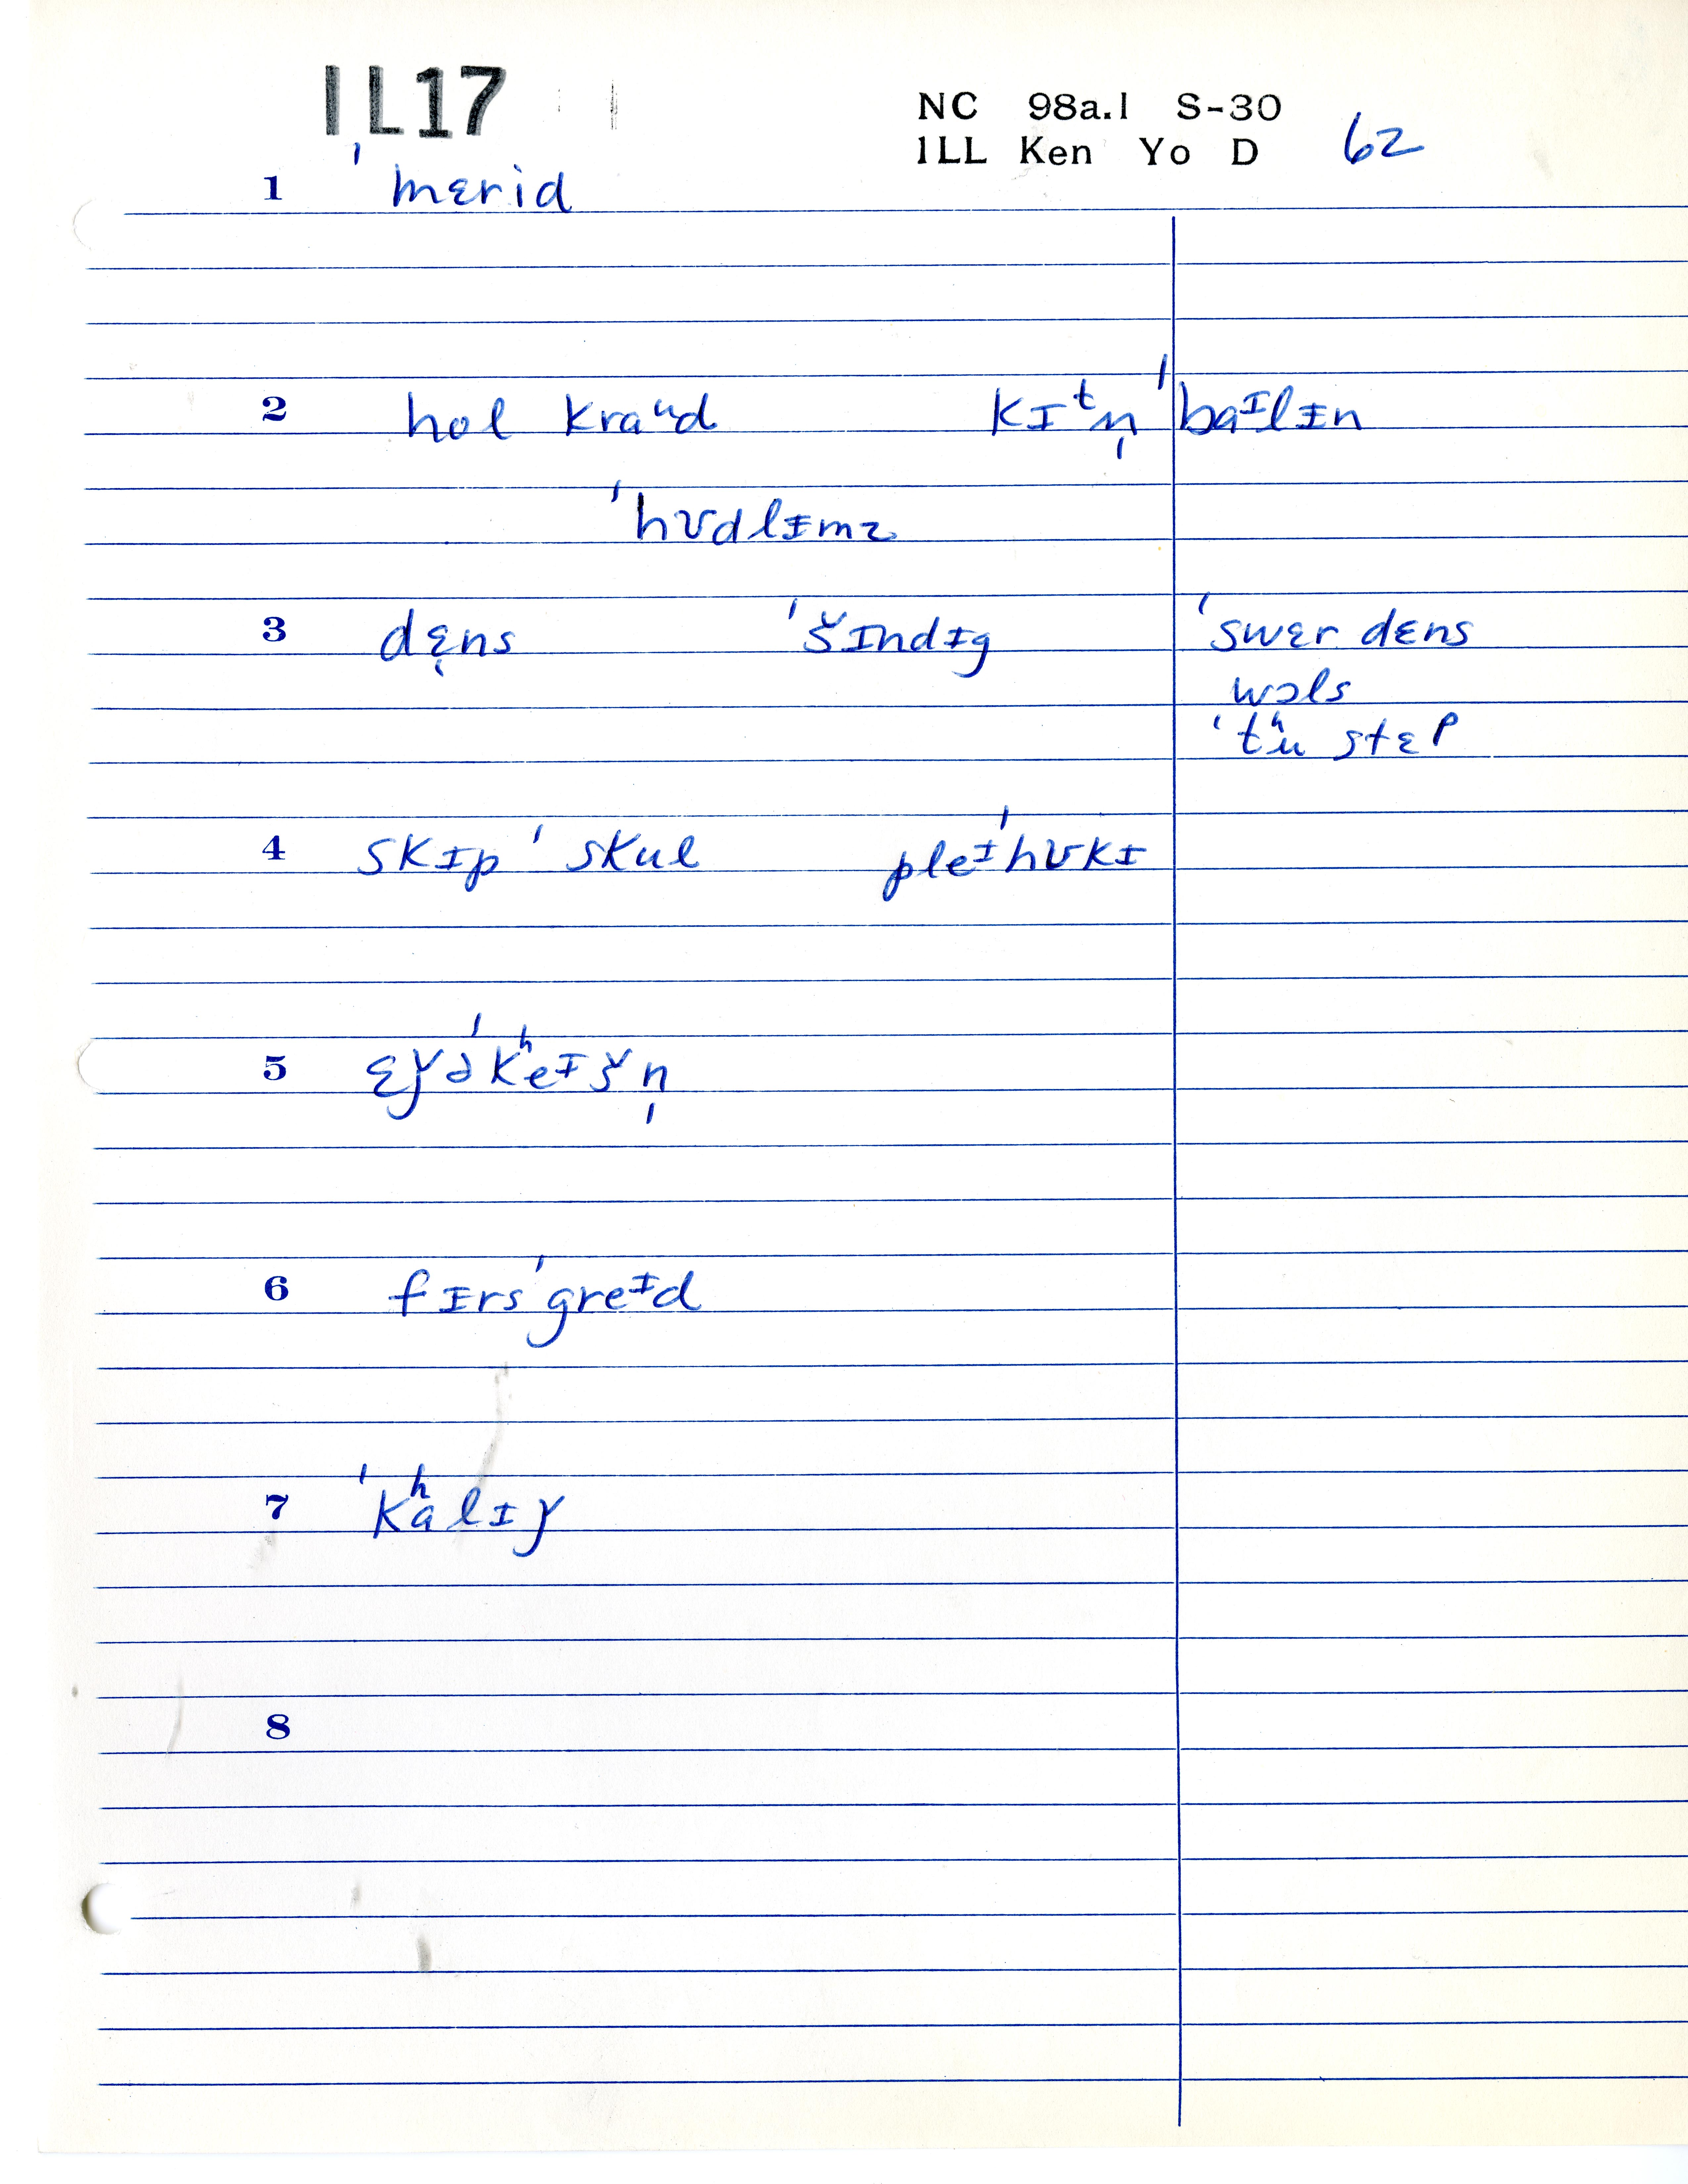 IL17
NC 98a.1 S-30
ILL Ken Yo D 62
1 ˈmɛrid
2 hol kraᵘd kɪᵗn̩ ˈbaᶦlɪn
ˈhʊdlɪmz
3 dɛ̨ns ˈšɪndɪg ˈswɛr dɛns
wɔls
ˈtʰu stɛp
4 skɪp ˈskul pleᶦˈhʊkɪ
5 ɛǰəˈkʰeɪšn̩
6 fɪrsˈgreᶦd
7 ˈkʰalɪǰ
8